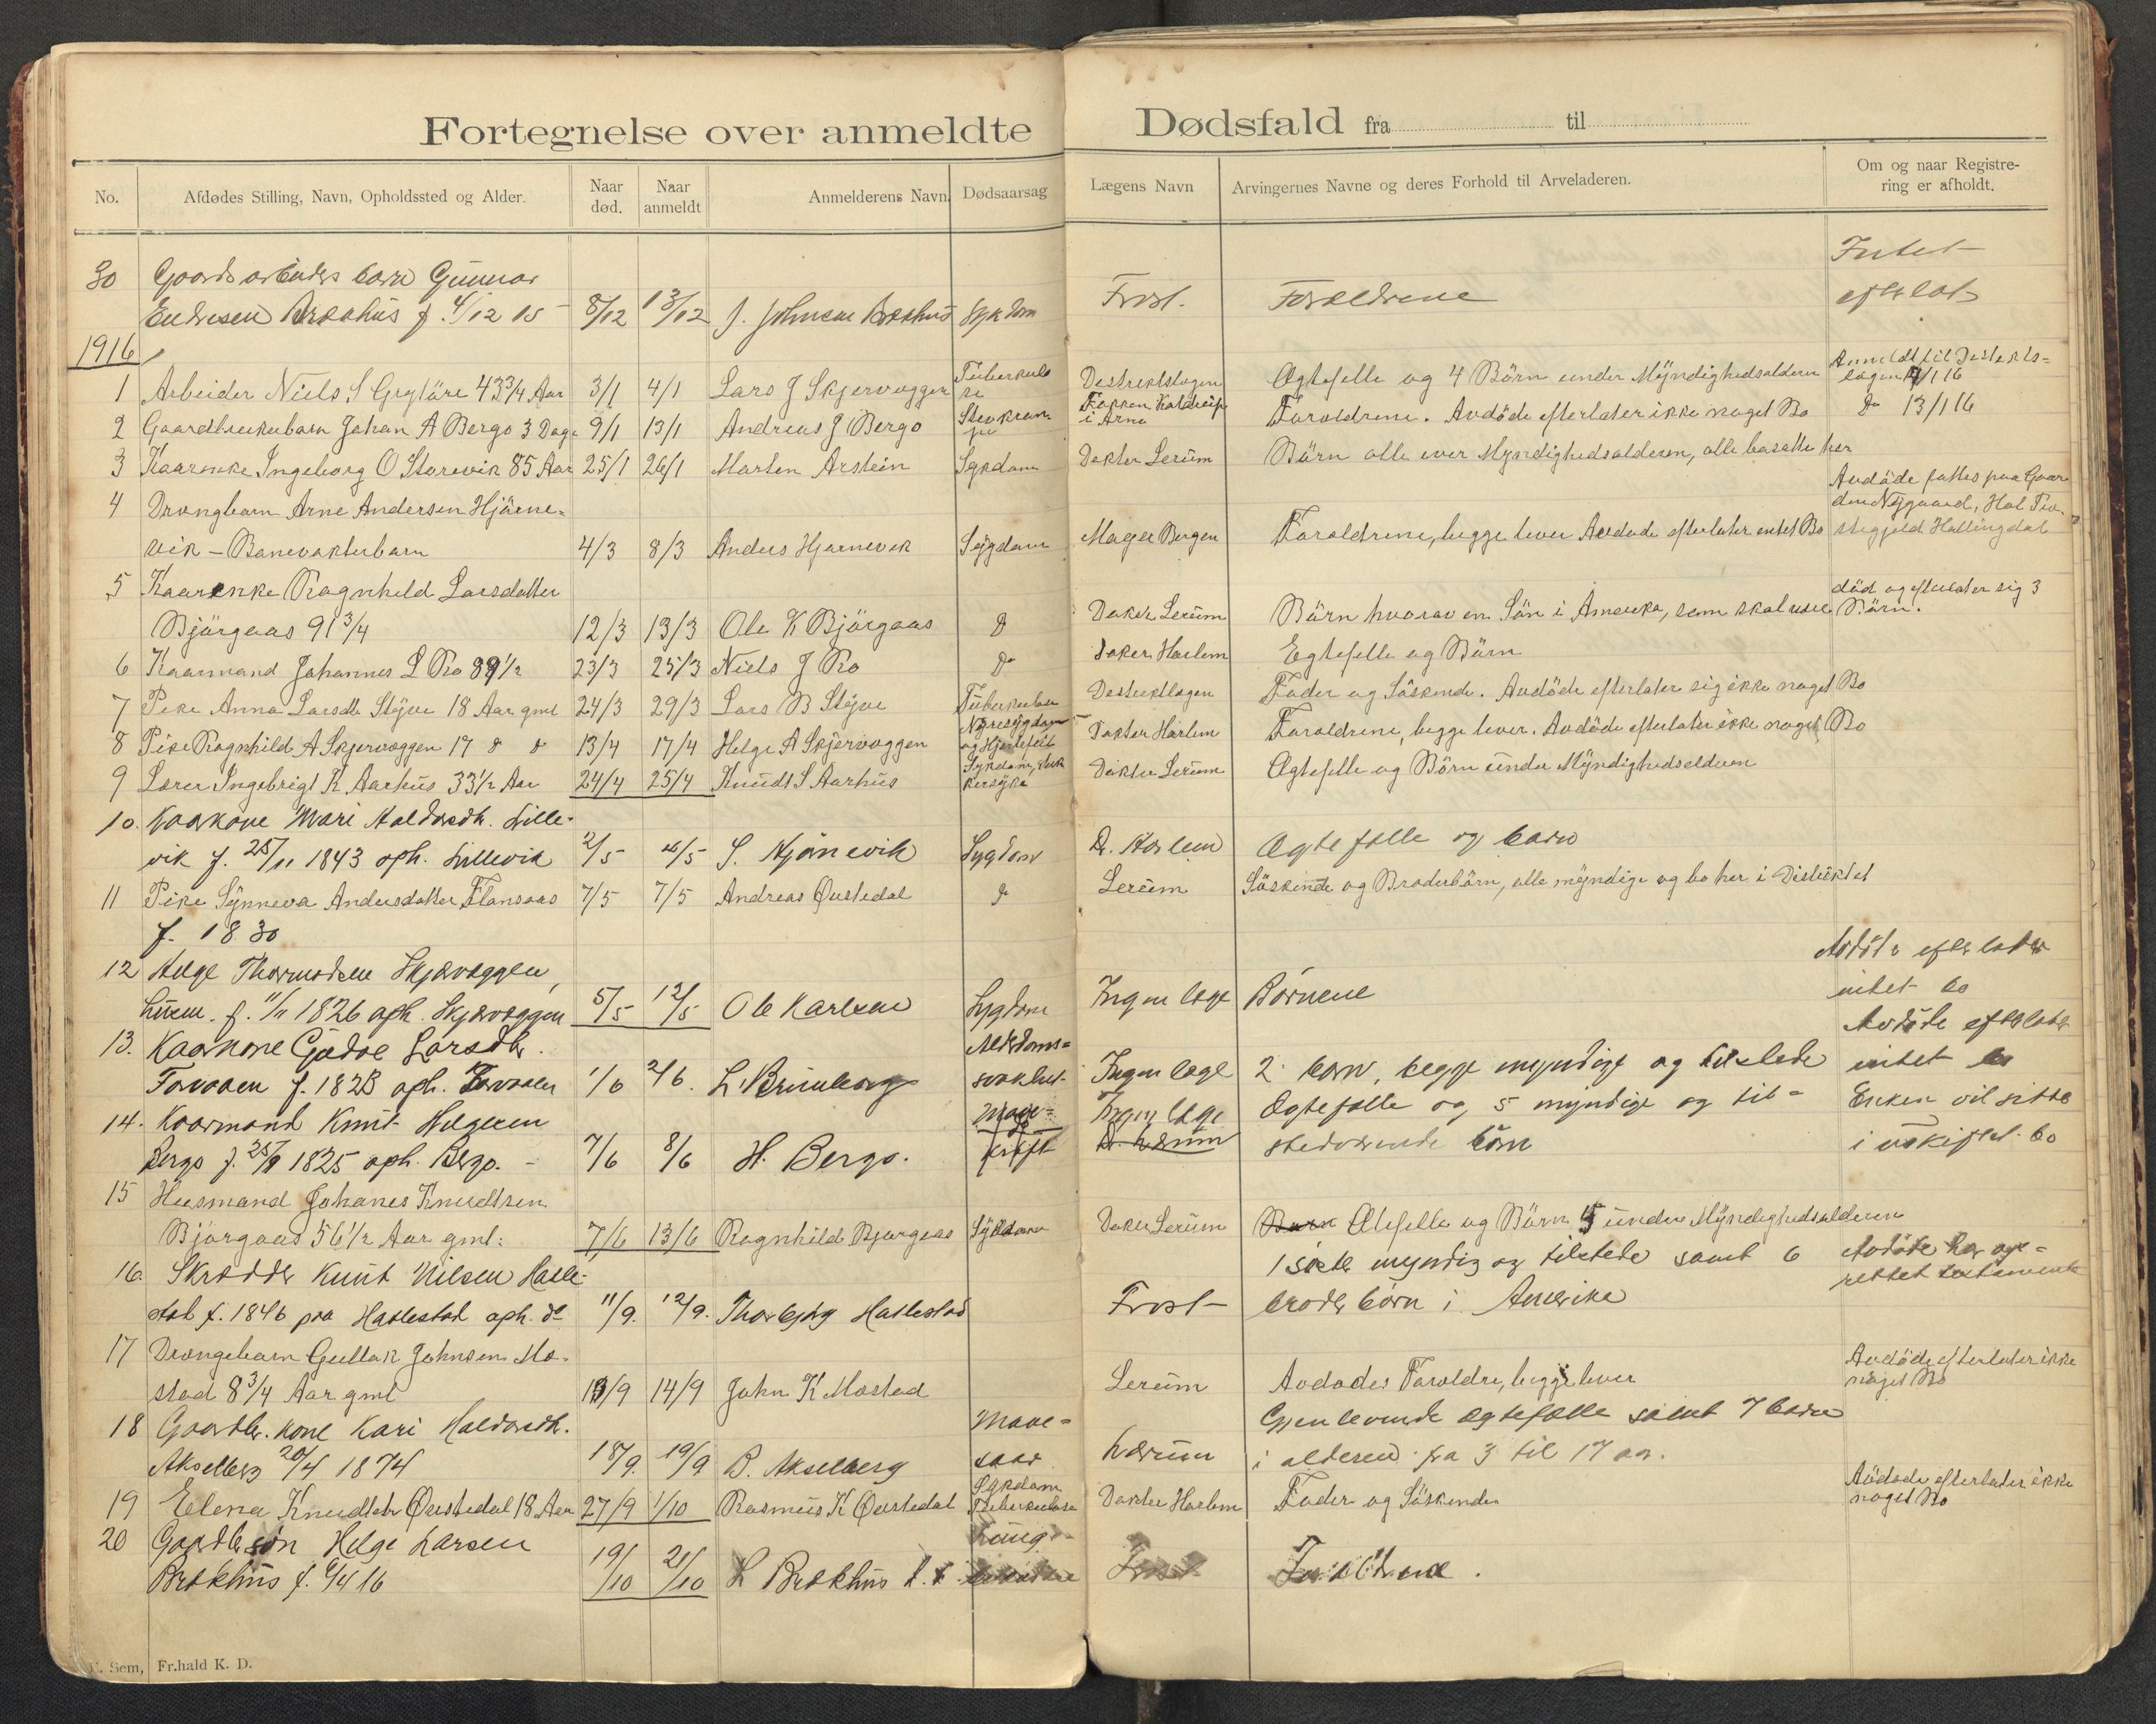 Fortegnelse over anmeldte Dødsfald fra til
No. Afdødes Stilling, Navn, Opholdssted og Alder. Naar død. Naar anmeldt Anmelderens Navn. Dødsaarsag Lægens Navn Arvingernes Navne og deres Forhold til Arveladeren. Om og naar Registrering er afholdt.
30 Gaardsarbeiders barn Gunnar Intet
Endresen Brækhus f. 4/12 15 8/12 13/12 J. Johnsen Brækhus Sykdom Frost. Forældrene efterlat
1916
1 Arbeider Niels S Grytøre 43 3/4 Aar 3/1 4/1 Lars J Skjervæggen Tuberkulose Destriktslægen Ægtefelle og 4 Börn under Myndighedsalderen Anmeldt til
2 Gaardbrukerbarn Johan A Bergo 3 Dage 9/1 13/1 Andreas J Bergo i Arna Foraldrene. Avdöde efterlater ikke noget Bo Do 13/1 16
3 Kaarenke Ingeborg O Storevik 85 Aar 25/1 26/1 Marten Arstein Sykdom Dokter Lerum Börn alle over Myndighedsalderen, alle bosatte her
4 Drengbarn Arne Andersen Hjörne- Avdöde fattes paa Gaar-
vik - Banevokterbarn 4/3 8/3 Anders Hjørnevik Sygdom Mager Bergen Foraldrene, begge lever Avdøde efterlater intet Bo den Nygaard, Hol Prestegjeld Hallingdal
5 Kaarenke Ragnhild Larsdatter död og efterlater sig 3
Björgaas 91 3/4 12/3 13/3 Ole K Björgaas Do Dokter Lerum Börn hvorav en Sön i Amerika, som skal være Börn.
6 Kaarmand Johannes L Ro 89 1/2 23/3 25/3 Niels J Ro Do Dokter Harlem Egtefelle og Börn
7 Pike Anna Larsdtr Styve 18 Aar gml 24/3 29/3 Lars B Styve Tuberkulose Destriktlægen Fader og Söskende. Avdöde efterlater sig ikke noget Bo
8 Pike Ragnhild A Skjervæggen 17 Do Do 13/4 17/4 Helge A Skjervæggen Nyresygdom og Hjertefeil Dokter Harlem Foraldrene, begge lever. Avdöde efterlater ikke noget Bo
9 Lærer Ingebrigt K Aarhus 33 1/2 Aar 24/4 25/4 Knudt S Aarhus Sykdom, Sukkersyke Dokter Lerum Ægtefelle og Börn under Myndighedsalderen
10. Kaarkone Mari Haldorsdtr. Lille-
vik f. 25/11 1843 oph. Lillevik 2/5 4/5 S. Hjørnevik Sygdom Dr. Harlem Ægtefælle og barn
11 Pike Synneva Andersdatter Flansaas 7/5 7/5 Andreas Øvstedal Do Lerum Söskende og Broderbörn, alle myndige og bo her i Distriktet
f. 1830
12 Helge Thormodsen Skjervæggen, Avdöde efterlater
f. 1826 oph. Skjervæggen 5/5 12/5 Ole Karlsen Sygdom Ingen læge Børnene intet bo
13. Kaarkone Gudve Larsdtr. Alderdoms- Avdöde efterlater
f. 1823 oph. 1/6 2/6. L. Brunborg svakhet Ingen læge 2 børn, begge myndige og tilstede intet bo
14. Kaarmand Knut Helgesen Mave- Ingen læge Ægtefælle og 5 myndige og til- Enken vil sitte
Bergo f. 25/9 1825 oph. Bergo. - 7/6 8/6 H. Bergo. kræft Dr. Lærum stedværende børn i uskiftet bo
15 Husmand Johanes Knudtsen
Björgaas 56 1/2 Aar gml: 7/6 13/6 Ragnhild Bjørgaas Sykdom Dokter Lerum Barn Ektefelle og Börn 5 under Myndighedsalderen
16. Skrædder Knut Nilsen Hatle- 1 søster myndig og tilstede samt 6 Avdöde har op-
stad f. 1846 paa Hatlestad oph. do 11/9. 12/9. Thorbjørg Hatlestad Frost brodr børn i Amerika rettet testamente
17 Drengebarn Gullak Johnsen Mo- Avdöde efterlater ikke
stad 8 3/4 Aar gml 13/9 14/9 John K Mostad Lerum Avdödes Foraldre, begge lever noget Bo
18 Gaardbr. kone Kari Haldorsdtr. Mave- Gjenlevende ægtefælle samt 7 børn
Akselberg 20/4 1874 18/9. 19/9 B. Akselberg saar Lærum i alderen fra 3 til 17 aar.
19 Elena Knudtsdtr Øvstedal 18 Aar 27/9 1/10 Rasmus K Øvstedal Sykdom Tuberkulose Dokter Harlem Fader og Söskende Avdöde efterlater ikke noget Bo
20 Gaardbr. søn Helge Larsen Lunge-
Brækhus f. 6/4 16 19/10 21/10 L Brækhus Frost Forældrene.
Sem, Fr.hald K. D.